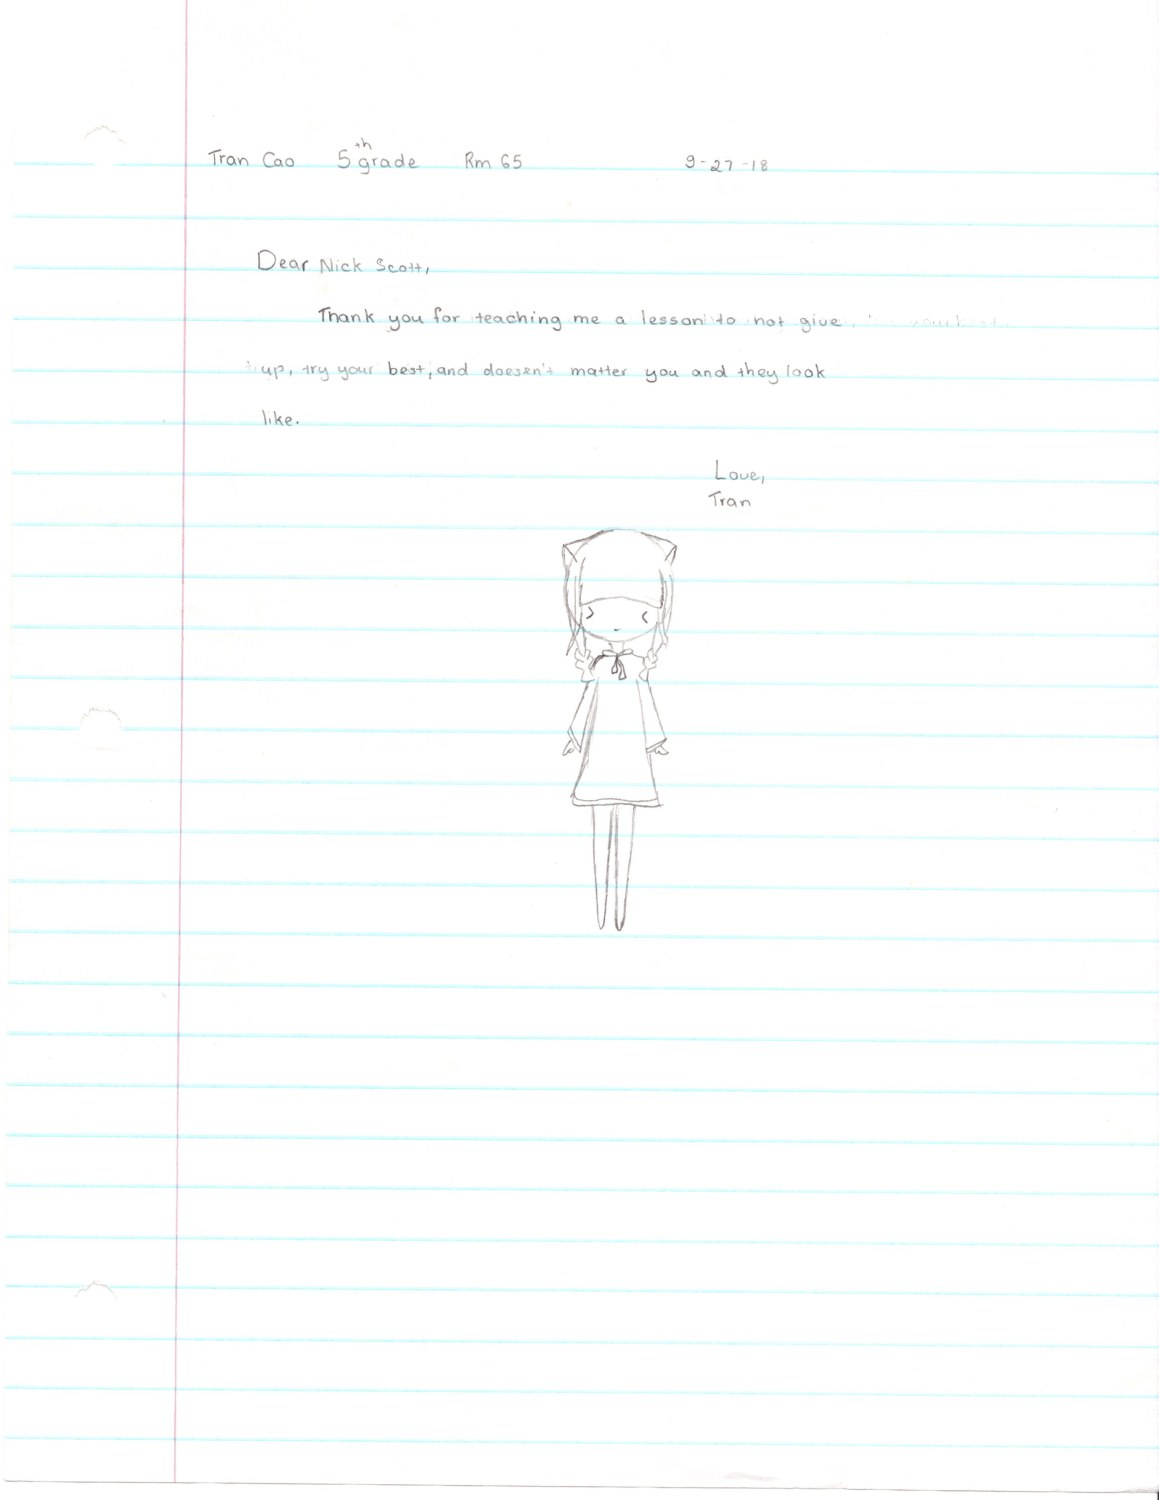 Tran Cao 5th grade Rm 65 9-27-18
Dear Nick Scott,
Thank you for teaching me a lesson to not give
up, try your best, and doesen't matter you and they look
like.
Love,
Tran